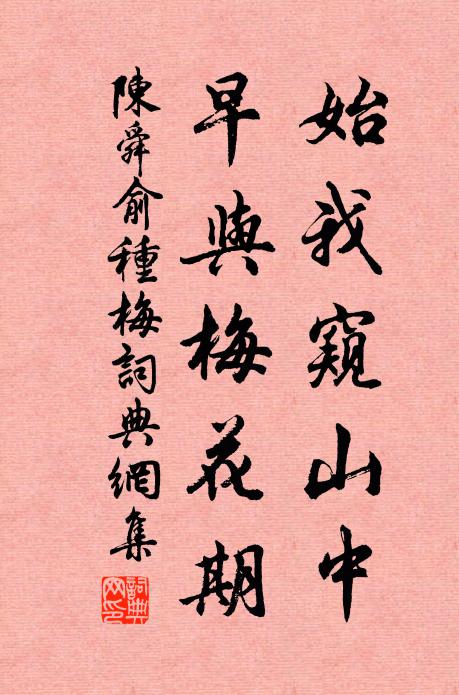 始我窺山中
早與梅花期
陳舜俞種梅詞典網集
詞典網印